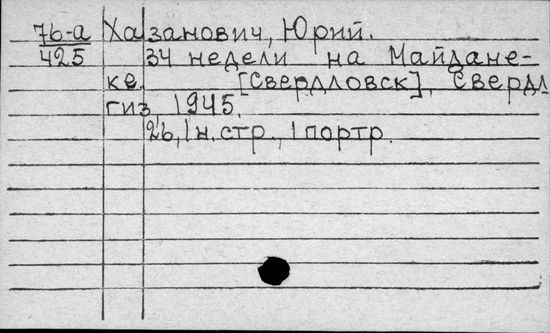 7б-а Хазанович, Юрий.
425 34 недели на Майдане-
ке. [Свердловск], Свердл
гиз, 1945.
26, 1 н. стр., 1 портр.